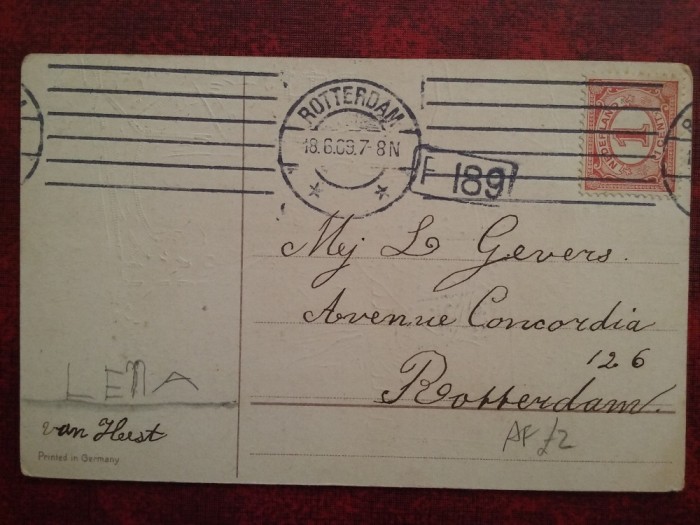 ROTTERDAM
18.6.09.7-8N
F 189
NEDERLAND
1
Mej L Gevers.
Avenue Concordia
126
Rotterdam.
LENA
van Heest
AF £2
Printed in Germany